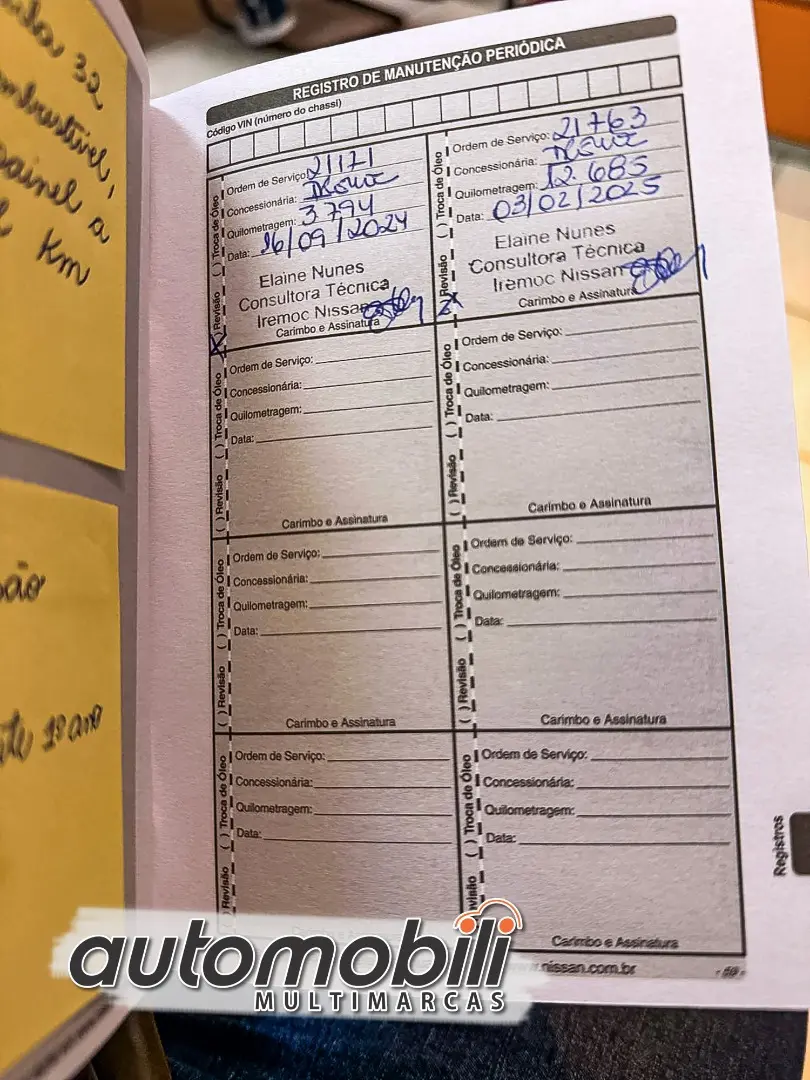 32
combustível,
painel a
Km
REGISTRO DE MANUTENÇÃO PERIÓDICA
Código VIN (número do chassi)
Ordem de Serviço: 21171
Concessionária:
Quilometragem: 3.794
Data: 16/09/2024
Elaine Nunes
Consultora Técnica
Iremoc Nissan
Carimbo e Assinatura
(X) Revisão ( ) Troca de Óleo
Ordem de Serviço: 21763
Concessionária:
Quilometragem: 12.685
Data: 03/02/2025
Elaine Nunes
Consultora Técnica
Iremoc Nissan
Carimbo e Assinatura
(X) Revisão ( ) Troca de Óleo
Ordem de Serviço:
Concessionária:
Quilometragem:
Data:
Carimbo e Assinatura
( ) Revisão ( ) Troca de Óleo
Ordem de Serviço:
Concessionária:
Quilometragem:
Data:
Carimbo e Assinatura
( ) Revisão ( ) Troca de Óleo
Ordem de Serviço:
Concessionária:
Quilometragem:
Data:
Carimbo e Assinatura
( ) Revisão ( ) Troca de Óleo
Ordem de Serviço:
Concessionária:
Quilometragem:
Data:
Carimbo e Assinatura
( ) Revisão ( ) Troca de Óleo
Ordem de Serviço:
Concessionária:
Quilometragem:
Data:
( ) Revisão ( ) Troca de Óleo
Ordem de Serviço:
Concessionária:
Quilometragem:
Data:
Carimbo e Assinatura
Revisão ( ) Troca de Óleo
1º ano
Registros
.nissan.com.br
automobili
MULTIMARCAS